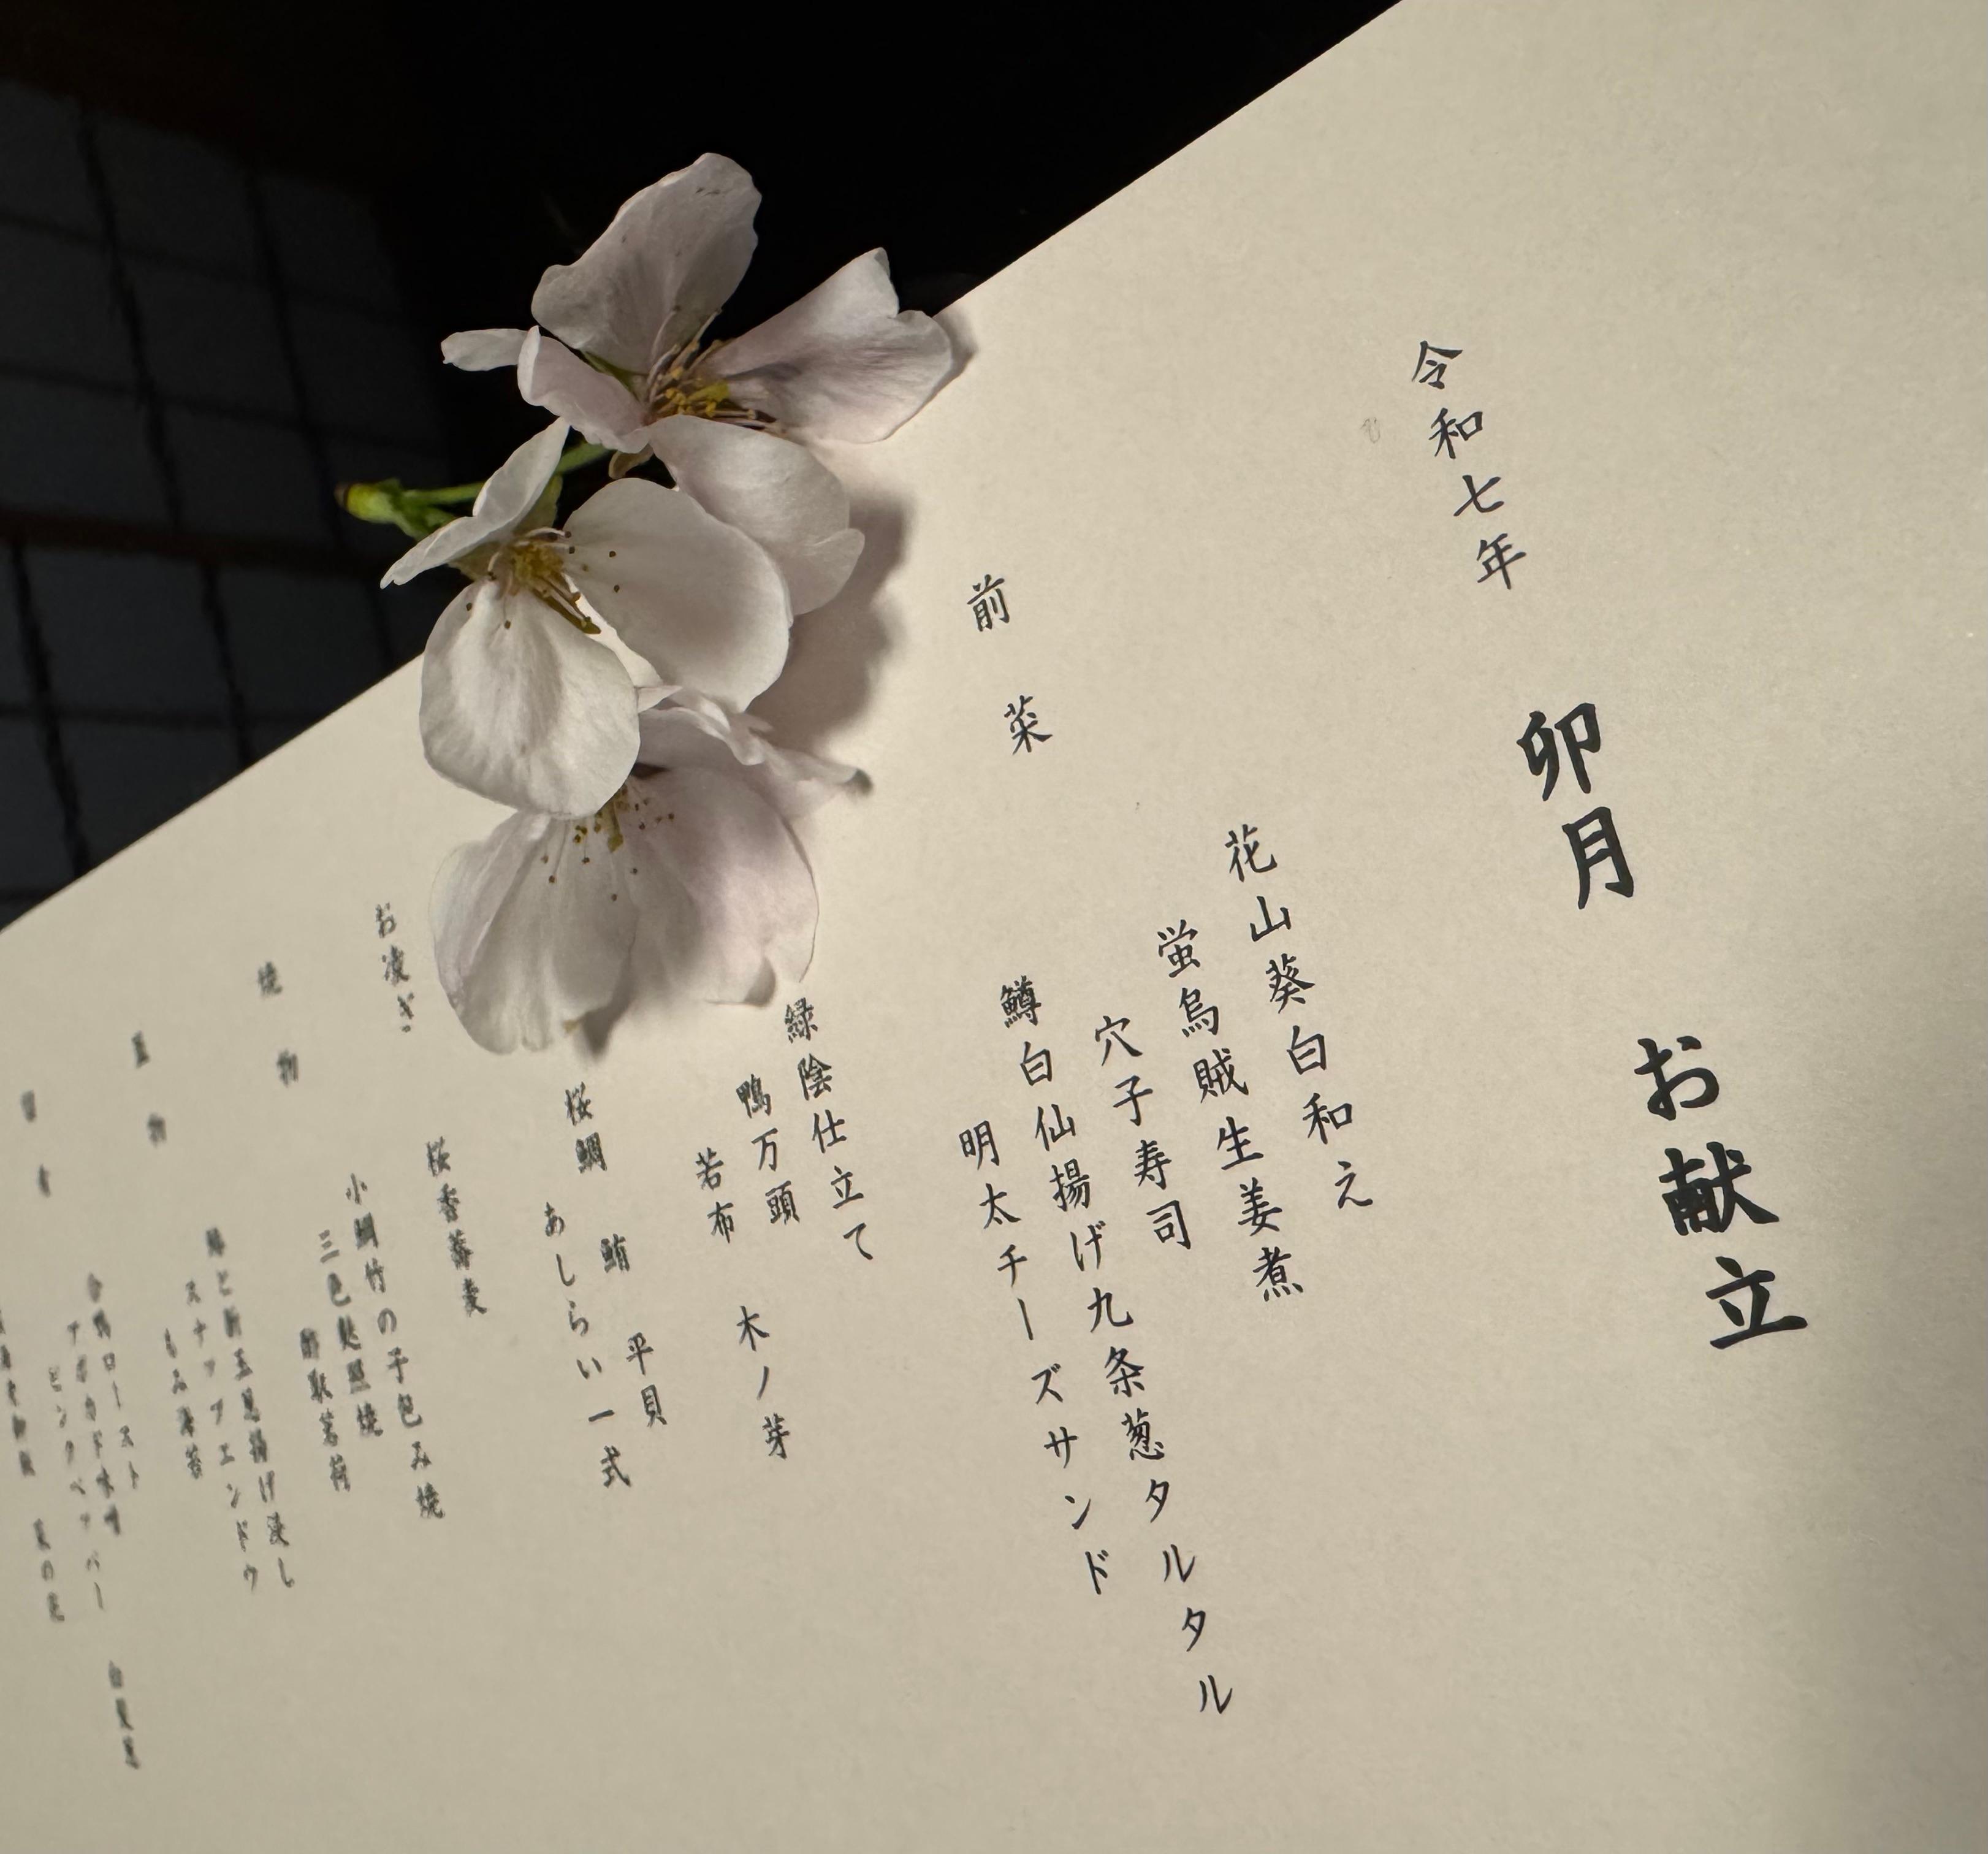 令和七年 卯月 お献立
前菜
花山葵白和え
蛍烏賊生姜煮
穴子寿司
鱒白仙揚げ九条葱タルタル
明太チーズサンド
緑陰仕立て
鴨万頭
若布 木ノ芽
桜鯛 鮪 平貝
あしらい一式
お凌ぎ
桜香蕎麦
焼物
小鯛竹の子包み焼
三色
酢取茗荷
物
と新玉葱揚げ浸し
スナップエンドウ
もみ海苔
合鴨ロースト
アボカド
ピンクペッパー